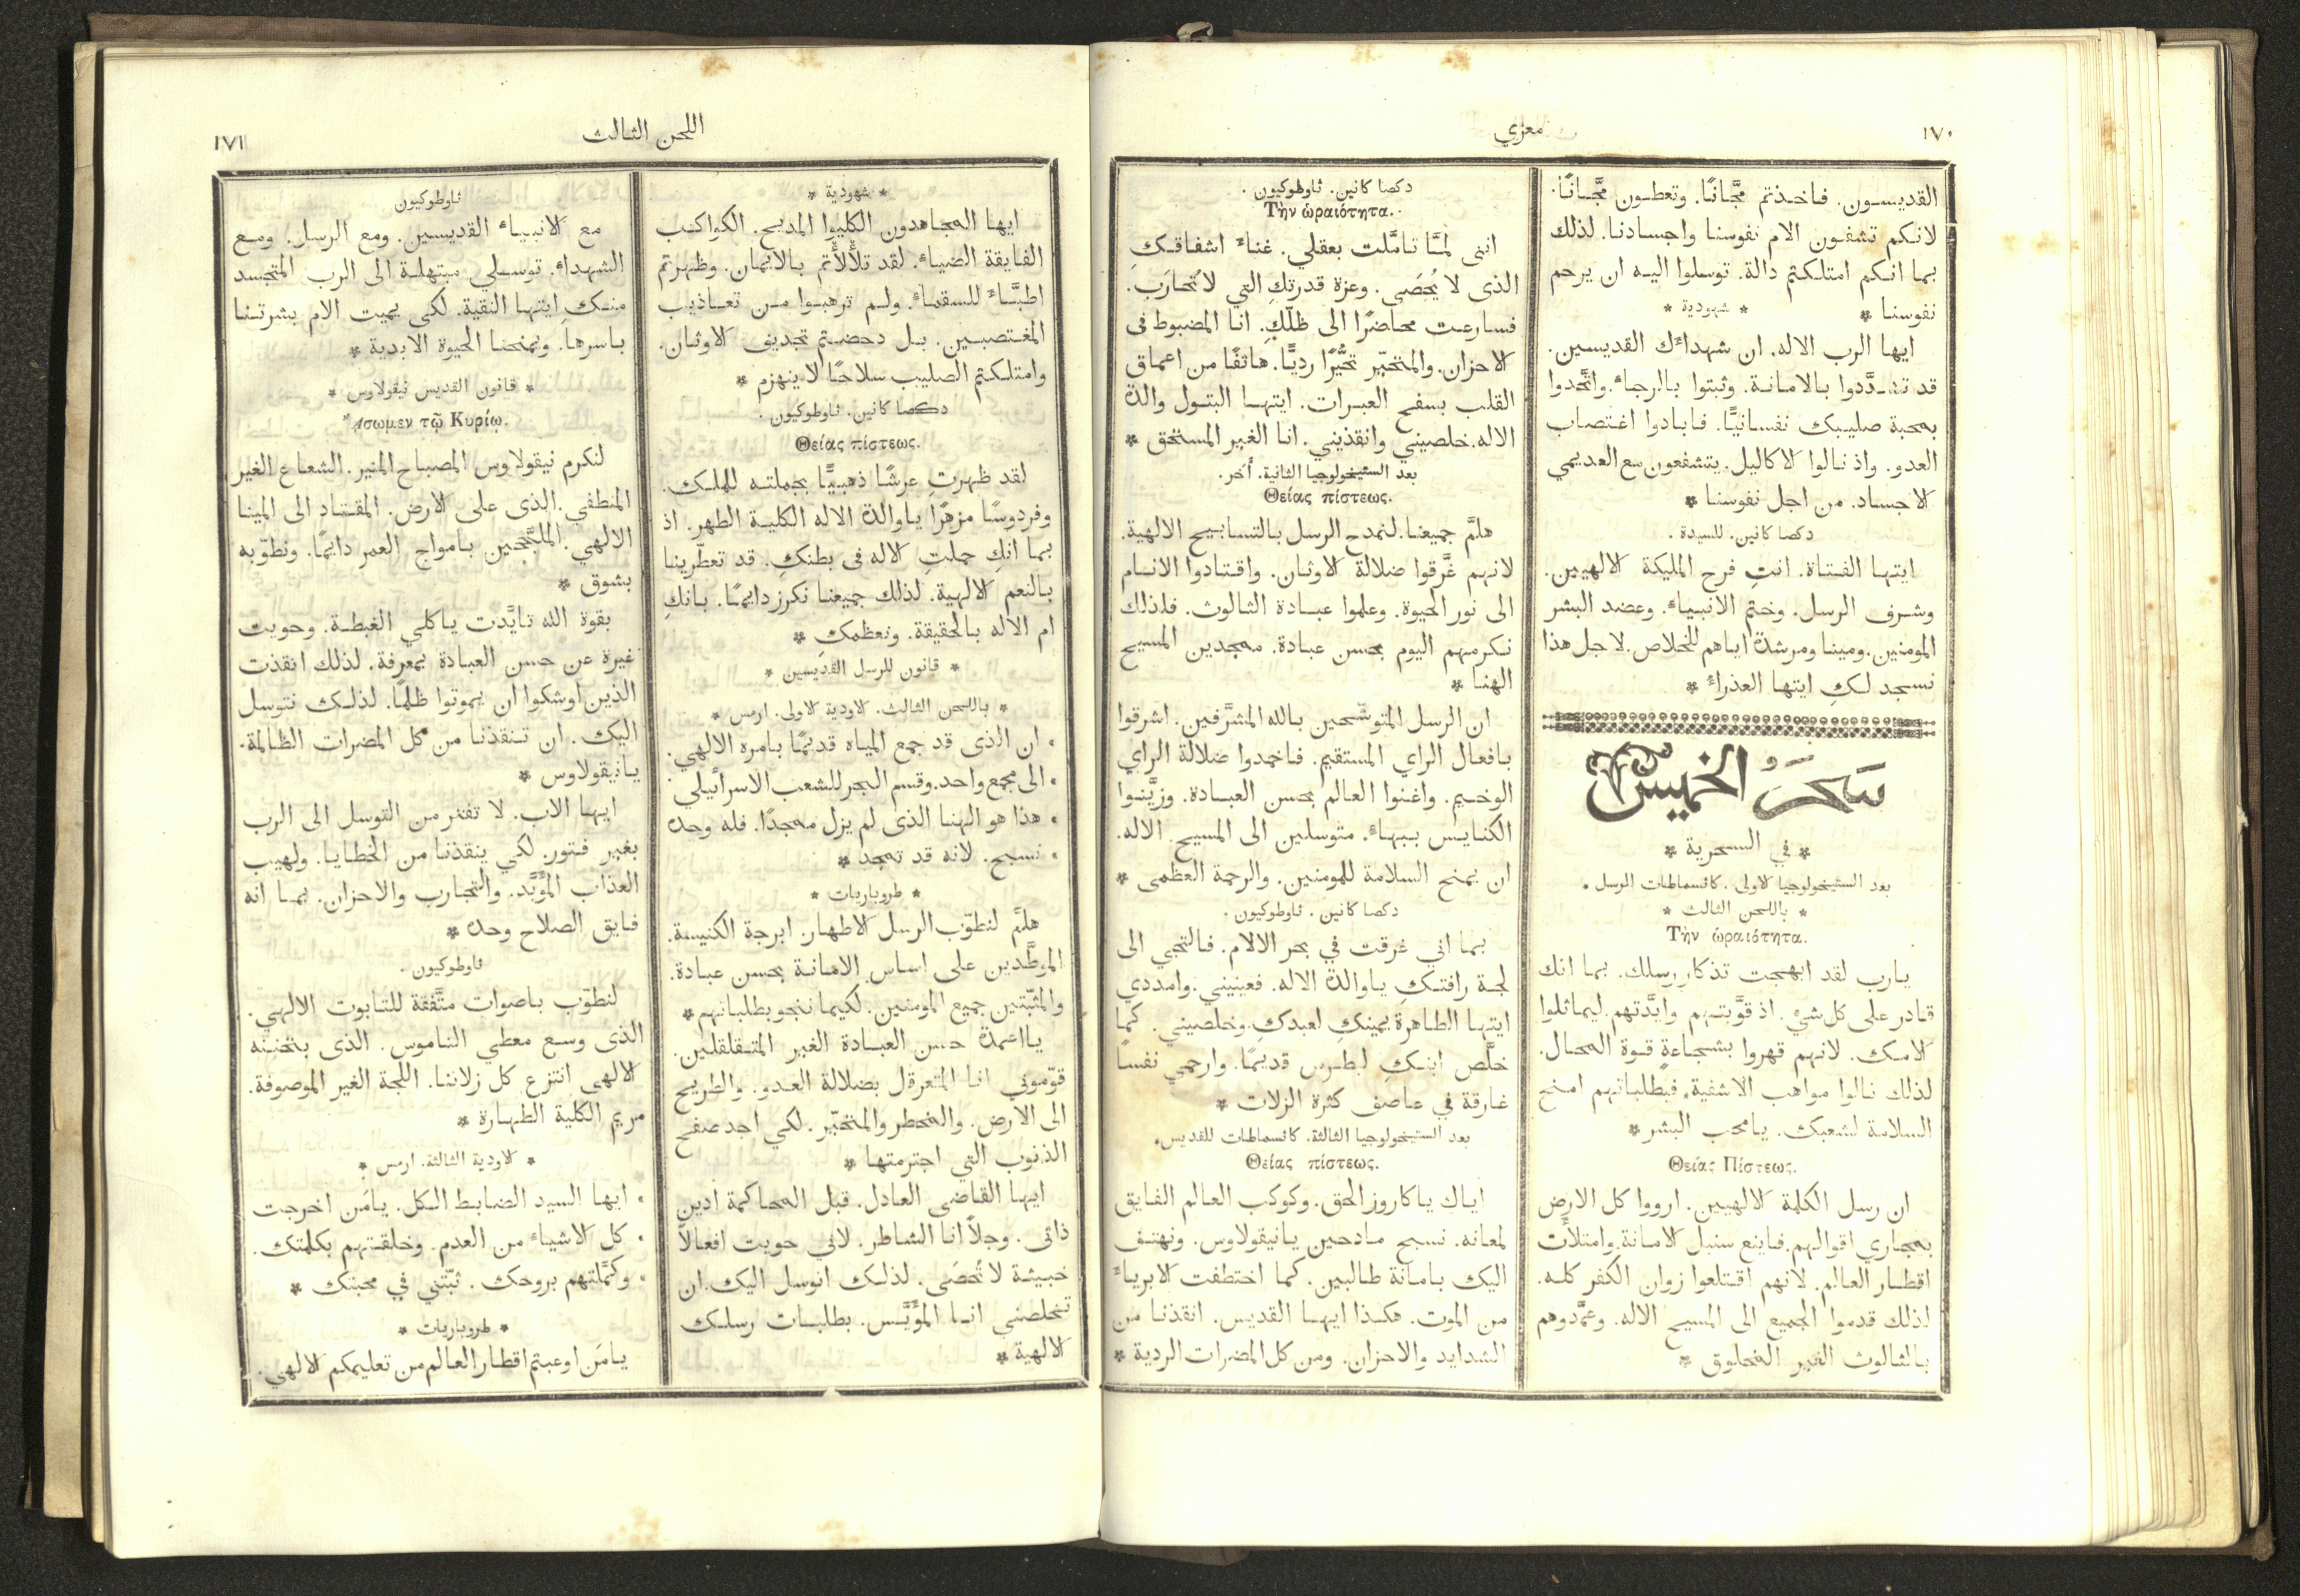 ١٧٠
معزي
القديسون. فاخذتم مجَّانًا. وتعطون مجَّانًا.
لانكم تشفون الام نفوسنا واجسادنا. لذلك
بما انكم امتلكتم دالة. توسلوا اليه ان يرحم
نفوسنا *
* شهودية *
ايها الرب الاله. ان شهداءك القديسين.
قد تشدَّدوا بالامانة. وثبتوا بالرجاء. واتَّحدوا
بمحبة صليبك نفسانيًّا. فابادوا اغتصاب
العدو. واذ نالوا الاكاليل. يتشفعون مع العديمي
الاجساد. من اجل نفوسنا *
دكصا كانين. للسيدة.
ايتها الفتاة. انتِ فرح المليكة الالهيين.
وشرف الرسل. وختم الانبياء. وعضد البشر
المومنين. ومينا ومرشدة اياهم للخلاص. لاجل هذا
نسجد لكِ ايتها العذراء *
سَحَرُ الخميس
* في السحرية *
بعد الستيخولوجيا الاولى. كاتسماطات الرسل.
* باللحن الثالث *
Τὴν ὡραιότητα.
يارب لقد ابهجت تذكار رسلك. بما انك
قادر على كل شيء. اذ قوَّيتهم وايَّدتهم. ليماثلوا
الامك. لانهم قهروا بشجاعةٍ قوة المحال.
لذلك نالوا مواهب الاشفية. فبطلباتهم امنح
السلامة لشعبك. يامحب البشر *
Θείας Πίστεως.
ان رسل الكلمة الالهيين. ارووا كل الارض
بمجاري اقوالهم. فاينع سنبل الامانة. وامتلأت
اقطار العالم. لانهم اقتلعوا زوان الكفر كله.
لذلك قدموا الجميع الى المسيح الاله. وعمَّدوهم
بالثالوث الغير المخلوق *
دكصا كانين. ثاوطوكيون.
Τὴν ὡραιότητα.
اننى لمَّا تاملت بعقلي. غناء اشفاقكِ
الذى لا يُحصَى. وعزة قدرتكِ التي لاتُحارَب.
فسارعت محاضرًا الى ظلّكِ. انا المضبوط فى
الاحزان. والمتحيّر تحيُّرًا رديًّا. هاتفًا من اعماق
القلب بسفح العبرات. ايتها البتول والدة
الاله. خلصيني وانقذيني. انا الغير المستحق *
بعد الستيخولوجيا الثانية. أخر.
Θείας πίστεως.
هلمَّ جميعنا. لنمدح الرسل بالتسابيح الالهية.
لانهم غرَّقوا ضلالة الاوثان. واقتادوا الانام
الى نور الحيوة. وعلموا عبادة الثالوث. فلذلك
نكرمهم اليوم بحسن عبادة. ممجدين المسيح
الهنا *
ان الرسل المتوشحين بالله المشرَّفين. اشرقوا
بافعال الراي المستقيم. فاخمدوا ضلالة الراي
الوخيم. واغنوا العالم بحسن العبادة. وزيَّنوا
الكنايس ببهاء. متوسلين الى المسيح الاله.
ان يمنح السلامة للمومنين. والرحمة العظمى *
دكصا كانين. ثاوطوكيون.
بما اني غرقت في بحر الالام. فالتجي الى
لجة رافتكِ ياوالدة الاله. فعينيني. وامددي
ايتها الطاهرة يمينكِ لعبدكِ. وخلصيني. كما
خلَّص ابنكِ لبطرس قديمًا. وارحمي نفسًا
غارقة في عاصف كثرة الزلات *
بعد الستيخولوجيا الثالثة. كاتسماطات للقديس.
Θείας πίστεως.
اياك ياكاروز الحق. وكوكب العالم الفايق
لمعانه. نسبح مادحين يانيقولاوس. ونهتف
اليك بامانة طالبين. كما اختطفت الابرياء
من الموت. هكذا ايها القديس. انقذنا من
الشدايد والاحزان. ومن كل المضرات الردية *
اللحن الثالث
١٧١
* شهودية *
ايها المجاهدون الكليوا المديح. الكواكب
الفايقة الضياء. لقد تلألأتم بالايمان. وظهرتم
اطبَّاء للسقماء. ولم ترهبوا من تعاذيب
المغتصبين. بل دحضتم تجديف الاوثان.
وامتلكتم الصليب سلاحًا لا ينهزم *
دكصا كانين. ثاوطوكيون.
Θείας πίστεως.
لقد ظهرتِ عرشًا ذهبيًّا بجملته للملك.
وفردوسًا مزهرًا ياوالدة الاله الكلية الطهر. اذ
بما انكِ حملتِ الاله فى بطنكِ. قد تعطّرينا
بالنعم الالهية. لذلك جميعنا نكرز دايمًا. بانكِ
ام الاله بالحقيقة. ونعظمكِ *
* قانون للرسل القديسين *
* باللحن الثالث. الاودية الاولى. ارمس *
• ان الذى قد جمع المياه قديمًا بامره الالهي.
• الى مجمع واحد. وقسم البحر للشعب الاسرائيلي.
• هذا هو الهنا الذى لم يزل ممجدًا. فله وحده
• نسبح. لانه قد تمجد *
* طروباريات *
هلمَّ لنطوّب الرسل الاطهار. ابرجة الكنيسة.
الموطَّدين على اساس الامانة بحسن عبادة.
والمثبّتين جميع المومنين. لكيما ننجو بطلباتهم *
يااعمدة حسن العبادة الغير المتقلقلين.
قوّموني انا المتعرقل بضلالة العدو. والطريح
الى الارض. والمخطر والمتحيّر. لكي اجد صفح
الذنوب التي اجترمتها *
ايها القاضى العادل. قبل المحاكمة ادين
ذاتى. وجلاً انا الشاطر. لاني حويت افعالاً
خبيثة لا تُحصَى. لذلك اتوسل اليك. ان
تخلصني انا المؤيَّس. بطلبات رسلك
الالهية *
ثاوطوكيون
مع الانبياء القديسين. ومع الرسل. ومع
الشهداء. توسلي مبتهلة الى الرب المتجسد
منكِ ايتها النقية. لكى يميت الام بشرتنا
باسرها. ويمنحنا الحيوة الابدية *
* قانون القديس نيقولاوس *
Ἄσωμεν τῷ Κυρίῳ.
لنكرم نيقولاوس المصباح المنير. الشعاع الغير
المنطفي. الذى على الارض. المقتاد الى المينا
الالهي. الملتجّين بامواج العمر دايمًا. ونطوّبه
بشوق *
بقوة الله تايَّدت ياكلي الغبطة. وحويت
غيرة عن حسن العبادة بمعرفة. لذلك انقذت
الذين اوشكوا ان يموتوا ظلمًا. لذلك نتوسل
اليك. ان تنقذنا من كل المضرات الظالمة.
يانيقولاوس *
ايها الاب. لا تفتر من التوسل الى الرب
بغير فتور. لكي ينقذنا من الخطايا. ولهيب
العذاب المؤبَّد. والتجارب والاحزان. بما انه
فايق الصلاح وحده *
ثاوطوكيون.
لنطوّب باصوات متَّفقة للتابوت الالهي.
الذى وسع معطي الناموس. الذى بتحننه
الالهى انتزع كل زلاتنا. اللجة الغير الموصوفة.
مريم الكلية الطهارة *
* الاودية الثالثة. ارمس *
• ايها السيد الضابط الكل. يامَن اخرجت
• كل الاشياء من العدم. وخلقتهم بكلمتك.
• وكمَّلتهم بروحك. ثبّتني في محبتك *
* طروباريات *
يامَن اوعبتم اقطار العالم من تعليمكم الالهي.